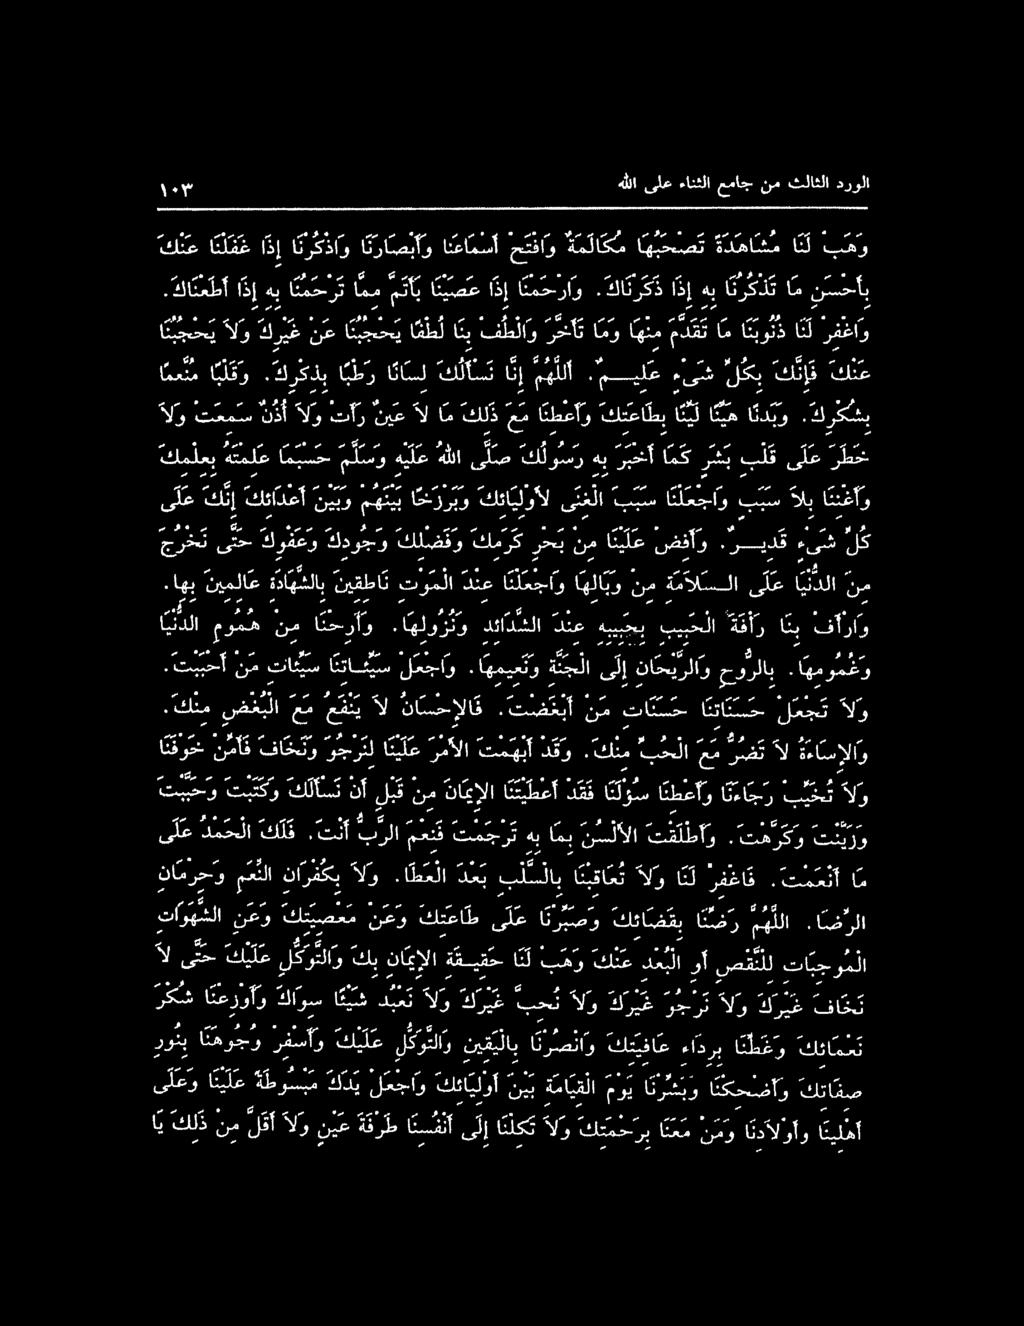 الورد الثالث من جامع الثناء على الله ١٠٣
وَهَبْ لَنَا مُشَاهَدَةً تَصْحَبُهَا مُكَالَمَةٌ وَافْتَحْ أَسْمَاعَنَا وَأَبْصَارَنَا وَاذْكُرْنَا إِذَا غَفَلْنَا عَنْكَ
بِأَحْسَنِ مَا تَذْكُرُنَا بِهِ إِذَا ذَكَرْنَاكَ. وَارْحَمْنَا إِذَا عَصَيْنَا بِأَتَمَّ مِمَّا تَرْحَمُنَا بِهِ إِذَا أَطَعْنَاكَ.
وَاغْفِرْ لَنَا ذُنُوبَنَا مَا تَقَدَّمَ مِنْهَا وَمَا تَأَخَّرَ وَالْطُفْ بِنَا لُطْفًا يَحْجُبُنَا عَنْ غَيْرِكَ وَلَا يَحْجُبُنَا
عَنْكَ فَإِنَّكَ بِكُلِّ شَىْءٍ عَلِيــمٌ. اَللَّهُمَّ إِنَّا نَسْأَلُكَ لِسَانًا رَطْبًا بِذِكْرِكَ. وَقَلْبًا مُنَعَّمًا
بِشُكْرِكَ. وَبَدَنًا هَيِّنًا لَيِّنًا بِطَاعَتِكَ وَأَعْطِنَا مَعَ ذَلِكَ مَا لَا عَيْنٌ رَأَتْ وَلَا أُذُنٌ سَمِعَتْ وَلَا
خَطَرَ عَلَى قَلْبِ بَشَرٍ كَمَا أَخْبَرَ بِهِ رَسُولُكَ صَلَّى اللهُ عَلَيْهِ وَسَلَّمَ حَسْبَمَا عَلِمْتَهُ بِعِلْمِكَ
وَأَغْنِنَا بِلَا سَبَبٍ وَاجْعَلْنَا سَبَبَ الْغِنَى لأَوْلِيَائِكَ وَبَرْزَخًا بَيْنَهُمْ وَبَيْنَ أَعْدَائِكَ إِنَّكَ عَلَى
كُلِّ شَىْءٍ قَدِيــرٌ. وَأَفِضْ عَلَيْنَا مِنْ بَحْرِ كَرَمِكَ وَفَضْلِكَ وَجُودِكَ وَعَفْوِكَ حَتَّى نَخْرُجَ
مِنَ الدُّنْيَا عَلَى الـسَّلَامَةِ مِنْ وَبَالِهَا وَاجْعَلْنَا عِنْدَ الْمَوْتِ نَاطِقِينَ بِالشَّهَادَةِ عَالِمِينَ بِهَا.
وَارْأَفْ بِنَا رَأْفَةَ الْحَبِيبِ بِحَبِيبِهِ عِنْدَ الشَّدَائِدِ وَنُزُولِهَا. وَأَرِحْنَا مِنْ هُمُومِ الدُّنْيَا
وَغُمُومِهَا. بِالرَّوْحِ وَالرَّيْحَانِ إِلَى الْجَنَّةِ وَنَعِيمِهَا. وَاجْعَلْ سَيِّئَـاتِنَا سَيِّئَاتِ مَنْ أَحْبَبْتَ.
وَلَا تَجْعَلْ حَسَنَاتِنَا حَسَنَاتِ مَنْ أَبْغَضْتَ. فَالإِحْسَانُ لَا يَنْفَعُ مَعَ الْبُغْضِ مِنْكَ.
وَالإِسَاءَةُ لَا تَضُرُّ مَعَ الْحُبِّ مِنْكَ. وَقَدْ أَبْهَمْتَ الأَمْرَ عَلَيْنَا لِنَرْجُوَ وَنَخَافَ فَآمِنْ خَوْفَنَا
وَلَا تُخَيِّبْ رَجَاءَنَا وَأَعْطِنَا سُؤْلَنَا فَقَدْ أَعْطَيْتَنَا الإِيمَانَ مِنْ قَبْلِ أَنْ نَسْأَلَكَ وَكَتَبْتَ وَحَبَّبْتَ
وَزَيَّنْتَ وَكَرَّهْتَ. وَأَطْلَقْتَ الأَلْسُنَ بِمَا بِهِ تَرْجَمَتْ فَنِعْمَ الرَّبُّ أَنْتَ. فَلَكَ الْحَمْدُ عَلَى
مَا أَنْعَمْتَ. فَاغْفِرْ لَنَا وَلَا تُعَاقِبْنَا بِالسَّلْبِ بَعْدَ الْعَطَا. وَلَا بِكُفْرَانِ النِّعَمِ وَحِرْمَانِ
الرِّضَا. اللَّهُمَّ رَضِّنَا بِقَضَائِكَ وَصَبِّرْنَا عَلَى طَاعَتِكَ وَعَنْ مَعْصِيَتِكَ وَعَنِ الشَّهَوَاتِ
الْمُوجِبَاتِ لِلنَّقْصِ أَوِ الْبُعْدِ عَنْكَ وَهَبْ لَنَا حَقِيــقَةَ الإِيمَانِ بِكَ وَالتَّوَكُّلِ عَلَيْكَ حَتَّى لَا
نَخَافَ غَيْرَكَ وَلَا نَرْجُوَ غَيْرَكَ وَلَا نُحِبَّ غَيْرَكَ وَلَا نَعْبُدَ شَيْئًا سِوَاكَ وَأَوْزِعْنَا شُكْرَ
نَعْمَائِكَ وَغَطِّنَا بِرِدَاءِ عَافِيَتِكَ وَانْصُرْنَا بِالْيَقِينِ وَالتَّوَكُّلِ عَلَيْكَ وَأَسْفِرْ وُجُوهَنَا بِنُورِ
صِفَاتِكَ وَأَضْحِكْنَا وَبَشِّرْنَا يَوْمَ الْقِيَامَةِ بَيْنَ أَوْلِيَائِكَ وَاجْعَلْ يَدَكَ مَبْسُوطَةً عَلَيْنَا وَعَلَى
أَهْلِينَا وَأَوْلَادِنَا وَمَنْ مَعَنَا بِرَحْمَتِكَ وَلَا تَكِلْنَا إِلَى أَنْفُسِنَا طَرْفَةَ عَيْنٍ وَلَا أَقَلَّ مِنْ ذَلِكَ يَا